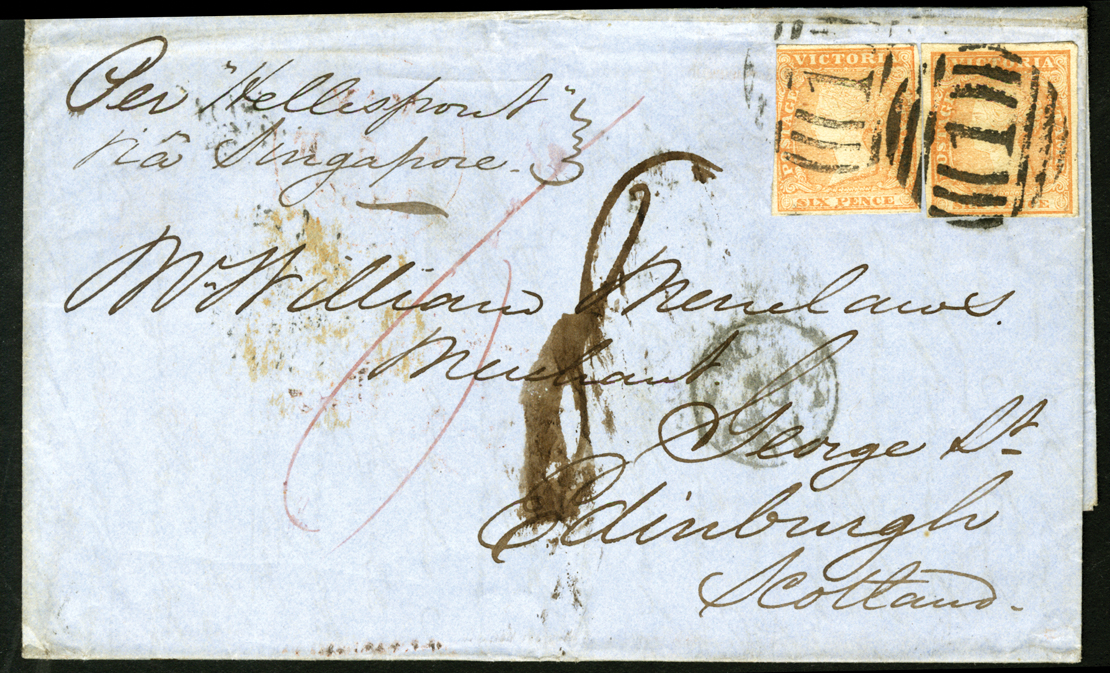 Per "Hellespont"
via Singapore.
VICTORIA
SIX PENCE
VICTORIA
1
1
8
Mr. William Menelaws.
Merchant.
George St
Edinburgh
Scotland.